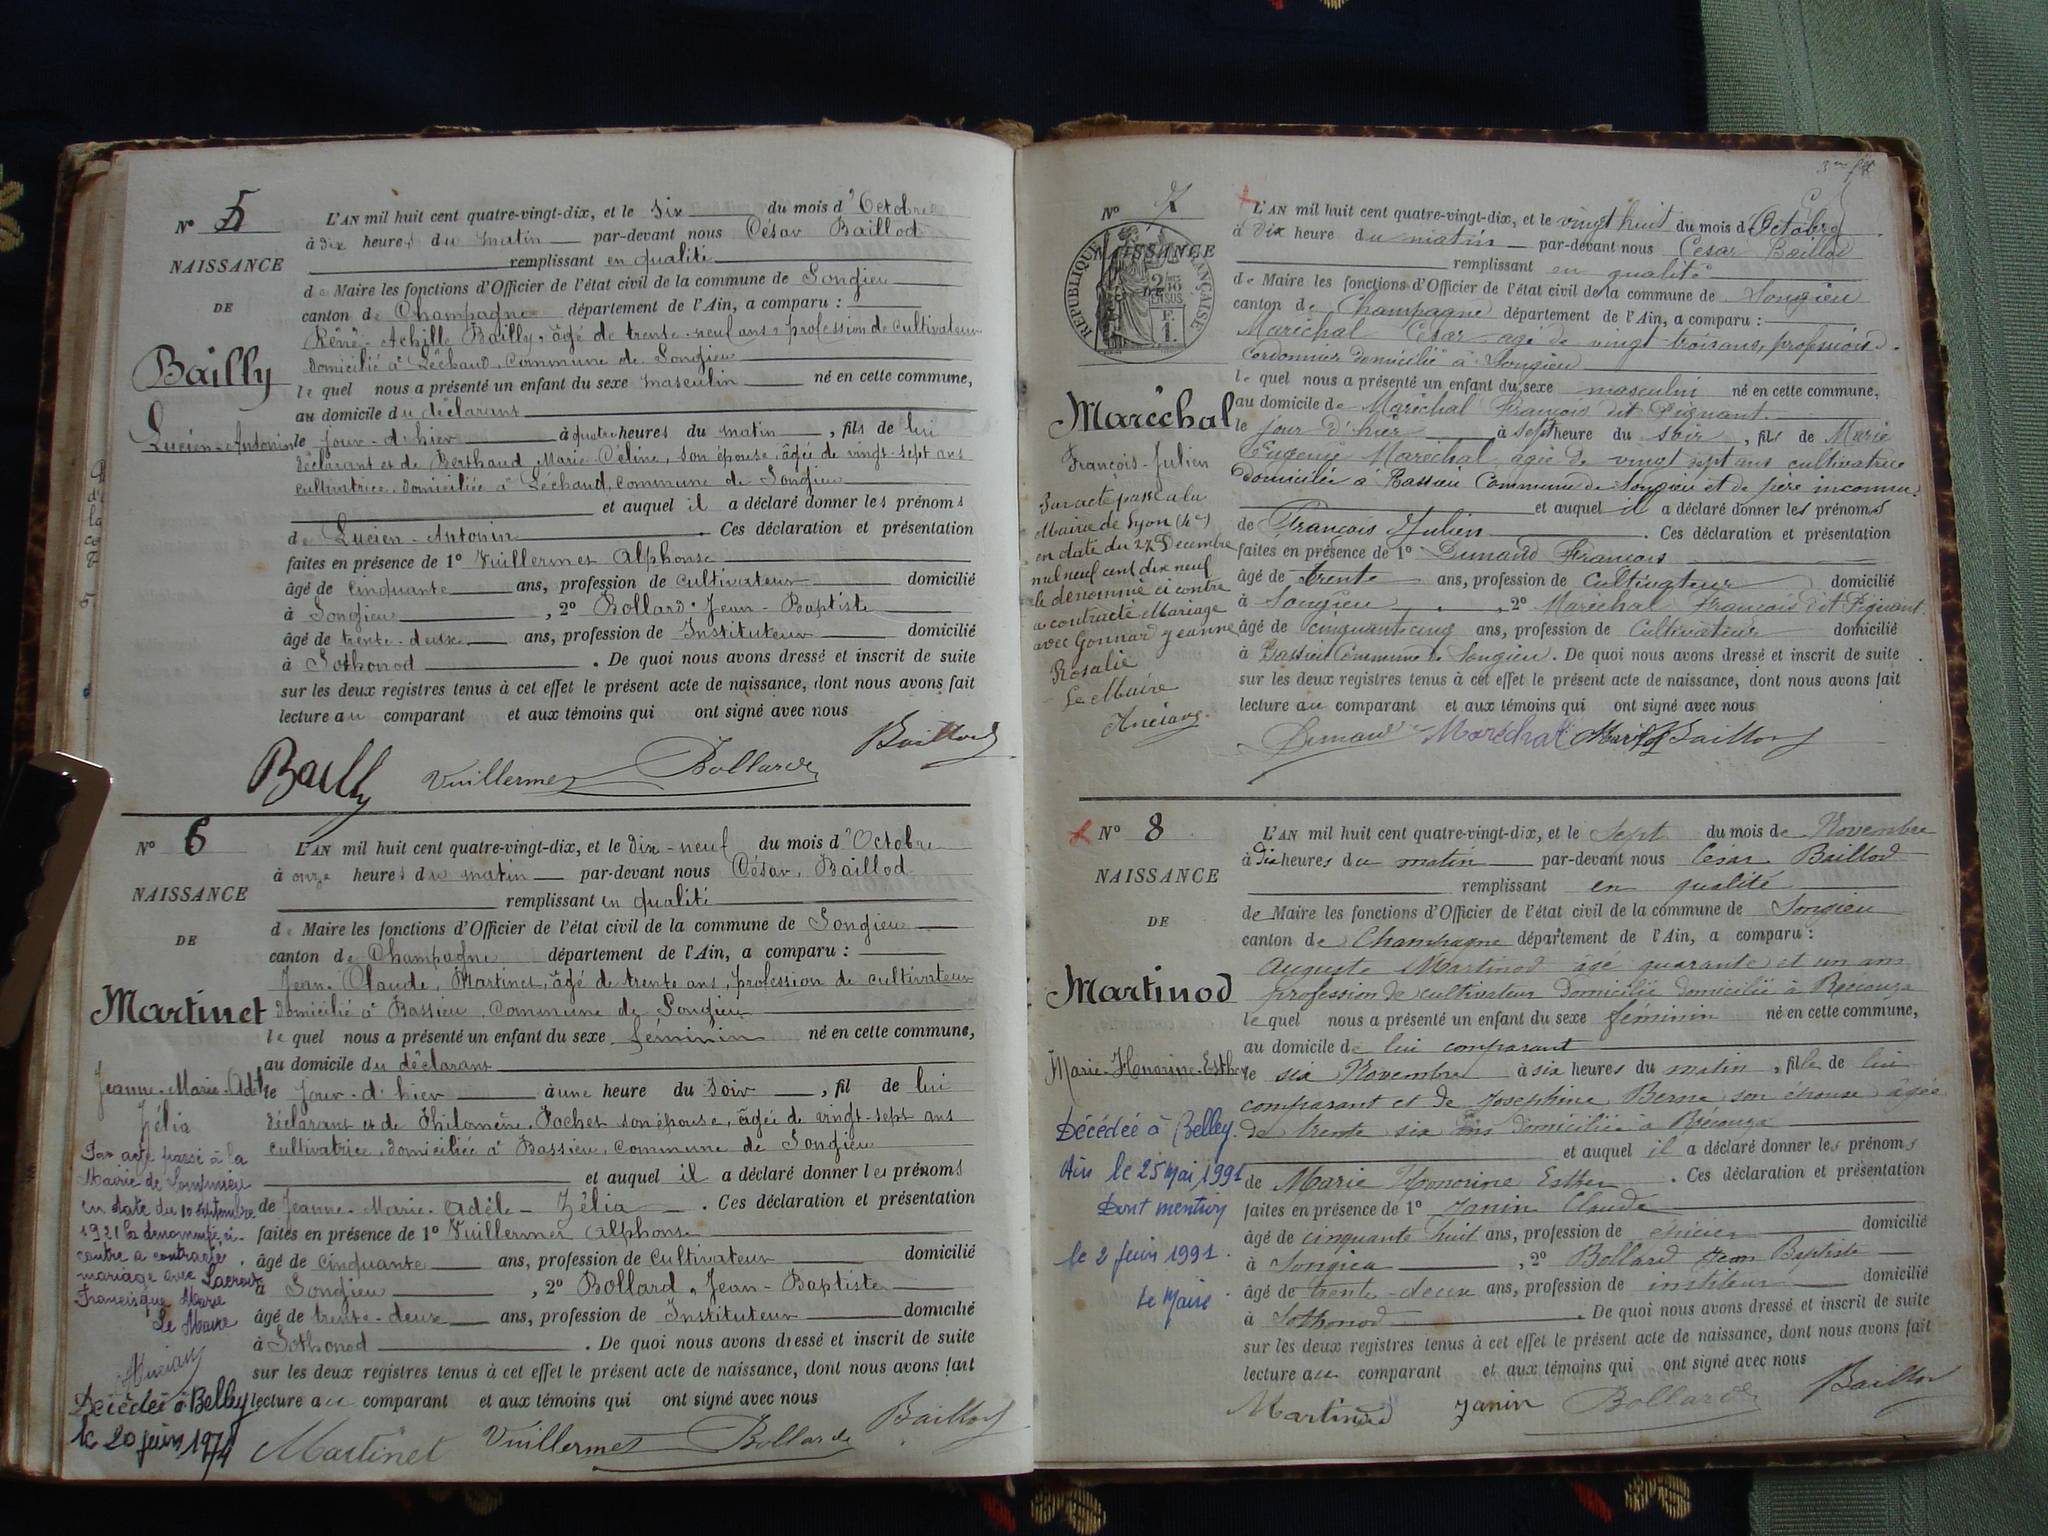 N° 5
NAISSANCE
DE
Bailly
Lucien-Antonin
L'AN mil huit cent quatre-vingt-dix, et le Six du mois d'Octobre
à dix heures du matin par-devant nous César Baillod
remplissant en qualité
de Maire les fonctions d'Officier de l'état civil de la commune de Songieu
canton de Champagne département de l'Ain, a comparu :
Réné-Achille Bailly, âgé de trente-neuf ans, profession de cultivateur
domicilié à Léchaud, Commune de Songieu
le quel nous a présenté un enfant du sexe masculin né en cette commune,
au domicile du déclarant
le jour-d'hier à quatre heures du matin, fils de lui
déclarant et de Berthaud Marie Céline, son épouse, âgée de vingt-sept ans
cultivatrice, domiciliée à Léchaud, commune de Songieu
et auquel il a déclaré donner les prénoms
de Lucien-Antonin. Ces déclaration et présentation
faites en présence de 1° Vuillermet Alphonse
âgé de cinquante ans, profession de cultivateur domicilié
à Songieu, 2° Bollard Jean-Baptiste
âgé de trente-deux ans, profession de Instituteur domicilié
à Sothonod. De quoi nous avons dressé et inscrit de suite
sur les deux registres tenus à cet effet le présent acte de naissance, dont nous avons fait
lecture au comparant et aux témoins qui ont signé avec nous
Bailly Vuillermet Bollard Baillod
N° 6
NAISSANCE
DE
Martinet
Jeanne-Marie-Adèle
Zélia
Par acte passé à la
Mairie de
en date du 10 septembre
1921 la dénommée ci-
contre a contracté
mariage avec Lacroix
Francisque Marie
Le Maire
Anciany
Décédée à Belley
le 20 juin 1974
L'AN mil huit cent quatre-vingt-dix, et le dix-neuf du mois d'Octobre
à onze heures du matin par-devant nous César Baillod
remplissant en qualité
de Maire les fonctions d'Officier de l'état civil de la commune de Songieu
canton de Champagne département de l'Ain, a comparu :
Jean-Claude Martinet, âgé de trente ans, profession de cultivateur
domicilié à Bassieu, Commune de Songieu
le quel nous a présenté un enfant du sexe féminin né en cette commune,
au domicile du déclarant
le jour-d'hier à une heure du soir, fil de lui
déclarant et de Philomène Pochet son épouse, âgée de vingt-sept ans
cultivatrice, domiciliée à Bassieu, commune de Songieu
et auquel il a déclaré donner les prénoms
de Jeanne-Marie-Adèle-Zélia. Ces déclaration et présentation
faites en présence de 1° Vuillermet Alphonse
âgé de cinquante ans, profession de cultivateur domicilié
à Songieu, 2° Bollard, Jean-Baptiste
âgé de trente-deux ans, profession de Instituteur domicilié
à Sothonod. De quoi nous avons dressé et inscrit de suite
sur les deux registres tenus à cet effet le présent acte de naissance, dont nous avons fait
lecture au comparant et aux témoins qui ont signé avec nous
Martinet Vuillermet Bollard Baillod
N° 7
NAISSANCE
DE
RÉPUBLIQUE FRANÇAISE
Maréchal
François-Julien
Par acte passé à la
Mairie de Lyon (4e)
en date du 27 Décembre
mil neuf cent dix neuf
le dénommé ci contre
a contracté Mariage
avec Gonnard Jeanne
Rosalie
Le Maire
Anciany
L'AN mil huit cent quatre-vingt-dix, et le vingt huit du mois d'Octobre
à dix heure du matin par-devant nous César Baillod
remplissant en qualité
de Maire les fonctions d'Officier de l'état civil de la commune de Songieu
canton de Champagne département de l'Ain, a comparu :
Maréchal César agé de vingt trois ans, profession d.
Cordonnier domicilié à Songieu
le quel nous a présenté un enfant du sexe masculin né en cette commune,
au domicile de Maréchal François dit Pignant.
le jour d'hier à sept heure du soir, fils de Marie
Eugénie Maréchal agée de vingt sept ans cultivatrice
domiciliée à Bassieu Commune de Songieu et de père inconnu.
et auquel il a déclaré donner les prénoms
de François Julien. Ces déclaration et présentation
faites en présence de 1° Dumand François
âgé de trente ans, profession de cultivateur domicilié
à Songieu, 2° Maréchal François dit Pignant
âgé de cinquante cinq ans, profession de cultivateur domicilié
à Bassieu Commune de Songieu. De quoi nous avons dressé et inscrit de suite
sur les deux registres tenus à cet effet le présent acte de naissance, dont nous avons fait
lecture au comparant et aux témoins qui ont signé avec nous
Maréchal Baillod
N° 8
NAISSANCE
DE
Martinod
Marie-Honorine-Esther
Décédée à Belley
Ain le 25 Mai 1991
Dont mention
le 2 Juin 1991.
Le Maire
L'AN mil huit cent quatre-vingt-dix, et le Sept du mois de Novembre
à dix heures du matin par-devant nous César Baillod
remplissant en qualité
de Maire les fonctions d'Officier de l'état civil de la commune de Songieu
canton de Champagne département de l'Ain, a comparu :
Auguste Martinod âgé quarante et un ans
profession de cultivateur domicilié domicilié à
le quel nous a présenté un enfant du sexe féminin né en cette commune,
au domicile de lui comparant
le six Novembre à six heures du matin, fille de lui
comparant et de Joséphine Berne son épouse âgée
de trente six ans domiciliée à
et auquel il a déclaré donner les prénoms
de Marie Honorine Esther. Ces déclaration et présentation
faites en présence de 1° Janin Claude
âgé de cinquante huit ans, profession de domicilié
à Songieu, 2° Bollard Jean Baptiste
âgé de trente-deux ans, profession de domicilié
à Sothonod. De quoi nous avons dressé et inscrit de suite
sur les deux registres tenus à cet effet le présent acte de naissance, dont nous avons fait
lecture au comparant et aux témoins qui ont signé avec nous
Martinod Janin Bollard Baillod